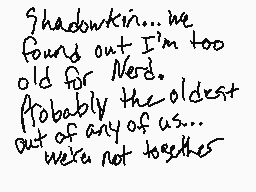 Shadowkin... we
found out I'm too
old for Nerd.
Probably the oldest
out of any of us...
we're not together